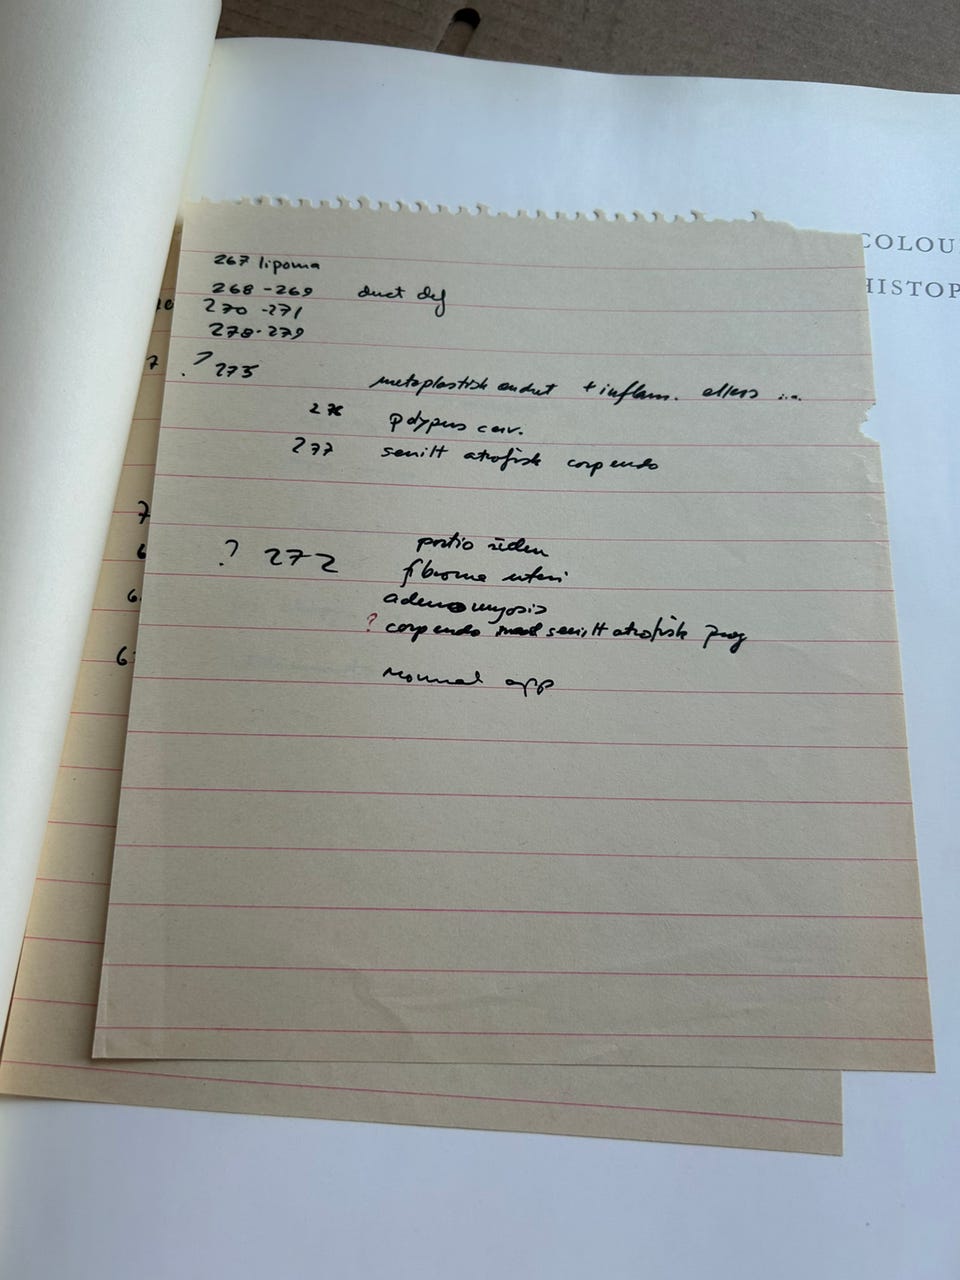 COLOU
HISTOP
267 lipoma
268-269 duct def
270-271
278-279
? 275
metaplastisk endut + inflam. ellers ...
276 polypus cerv.
277 senilt atrofisk corpendo
? 272 portio uden
fibroma uteri
adenomyosis
? corpendo med senilt atrofisk præg
normal app
7
7
6
6
6